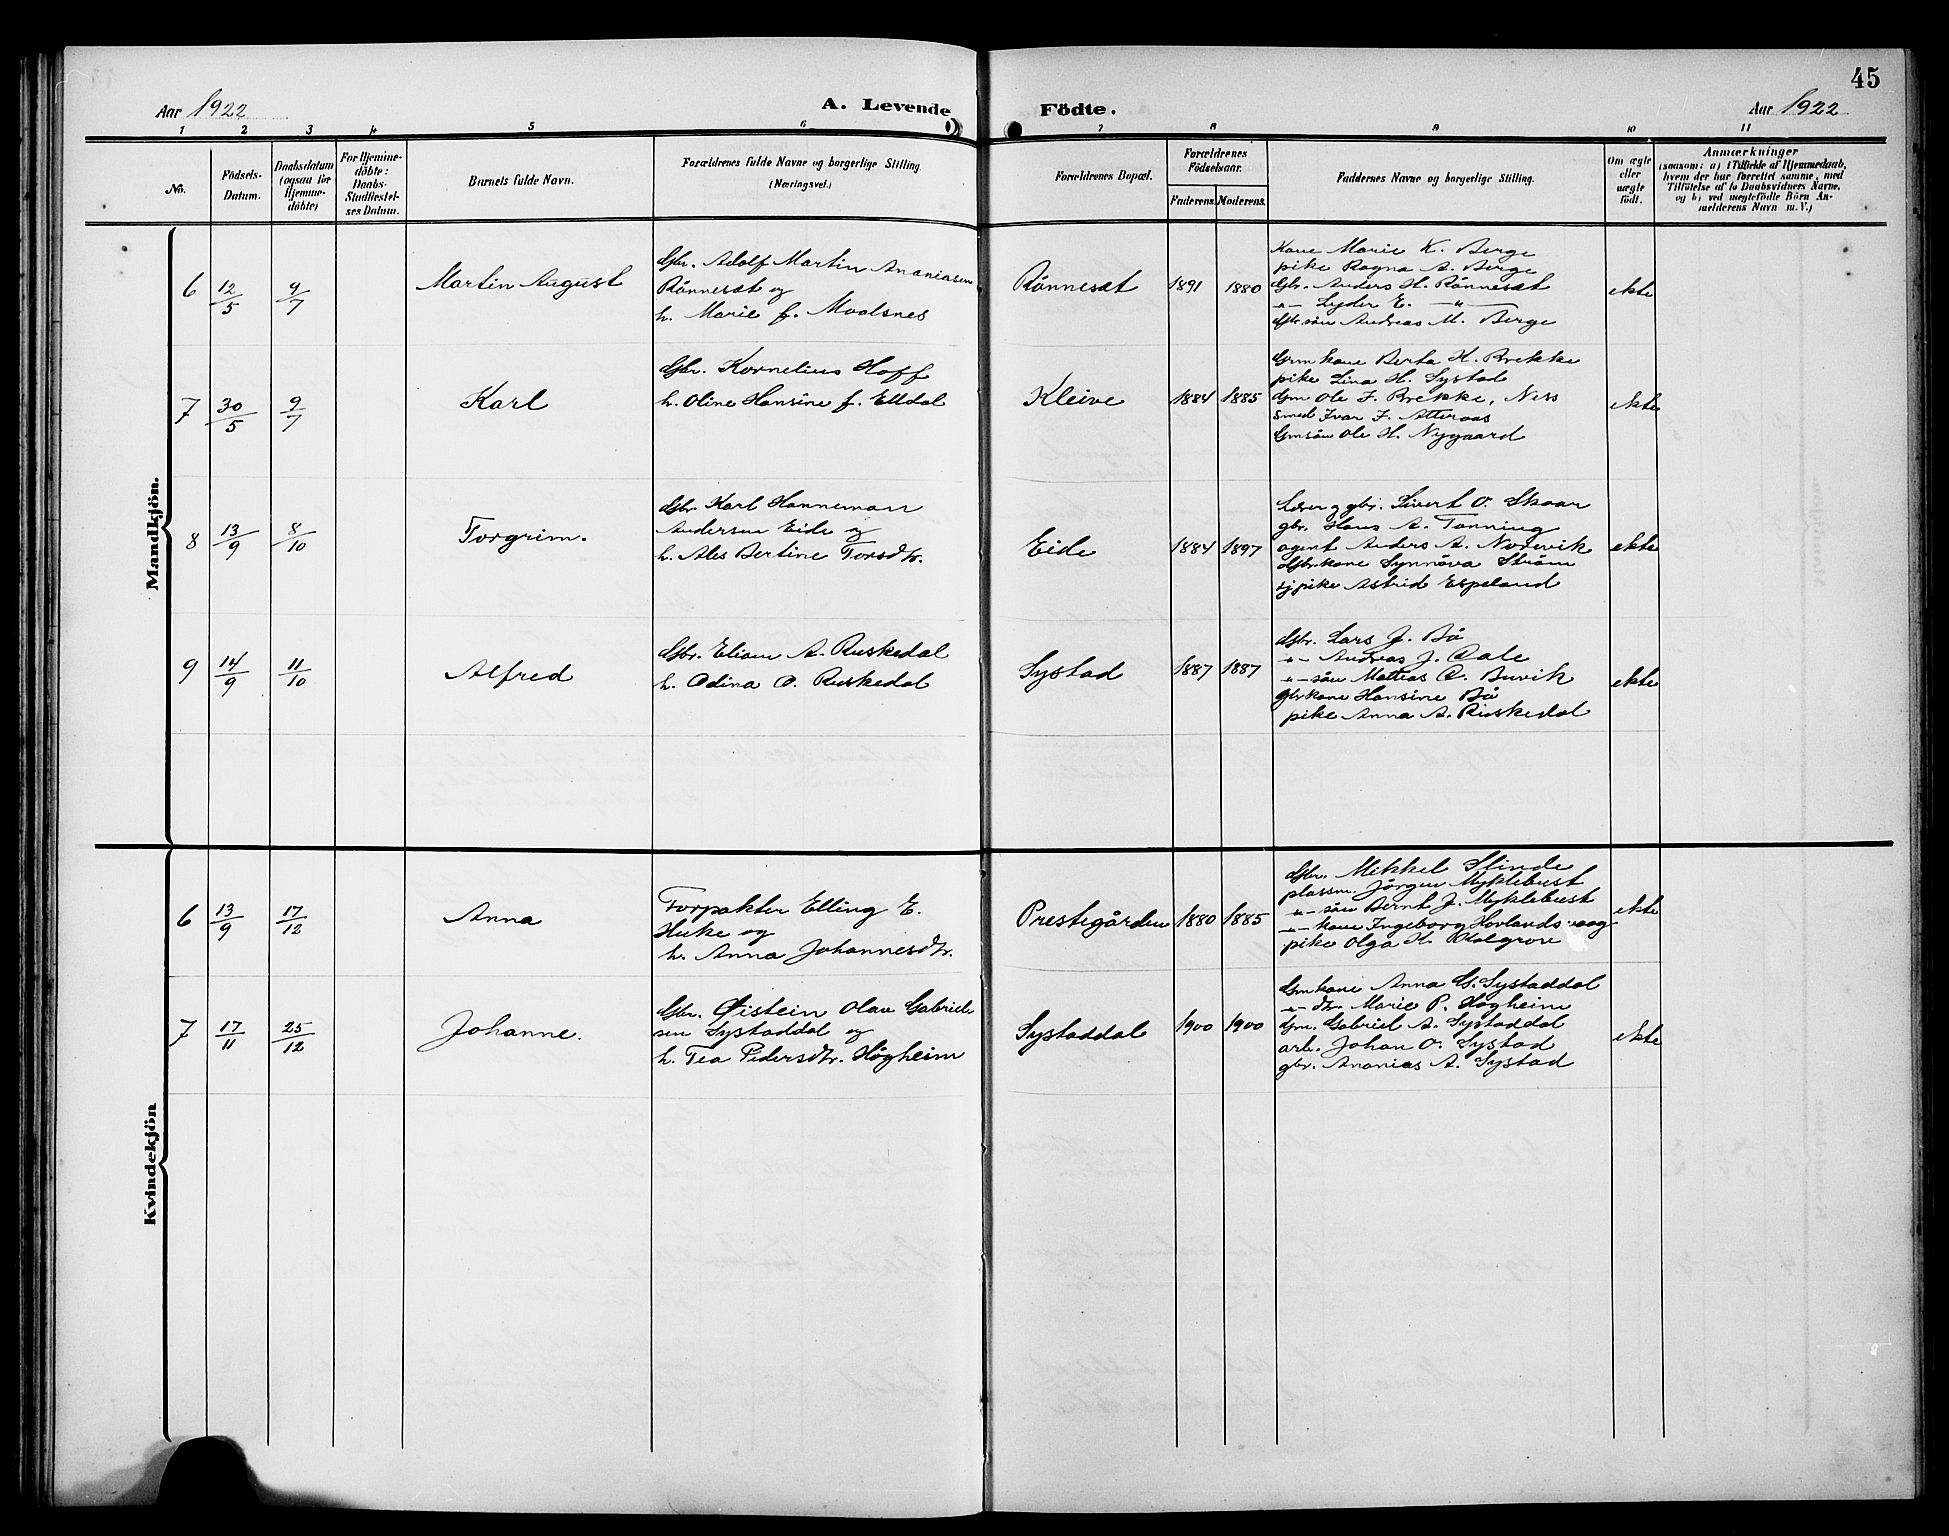 45
Aar 1922 A. Levende Födte. Aar 1922
1 2 3 4 5 6 7 8 9 10 11
No.
Födsels-
Datum.
Daabsdatum
(ogsaa for
Hjemme-
döbte)
For Hjemme-
döbte:
Daabs-
Stadfæstel-
ses Datum.
Barnets fulde Navn.
Forældrenes fulde Navne og borgerlige Stilling
(Næringsvei.)
Forældrenes Bopæl.
Forældrenes
Födselsaar.
Faderens. Moderens.
Faddernes Navne og borgerlige Stilling.
Om ægte
eller
uægte
födt.
Anmærkninger
(saasom: a) i Tilfælde af Hjemmedaab,
hvem der har forrettet samme, med
Tilföielse af to Daabsvidners Navne.
og b) ved uægtefödte Börn An-
melderens Navn m.V.)
Mandkjön.
6 12/5 9/7 Martin August
Gbr. Adolf Martin Ananiasen
Rønnesæt og
h. Marie f. Moalsnes
Rønnesæt 1891 1880
Kone Marie K. Berge
pike Ragna A. Berge
Gbr. Anders H. Rønnesæt
-"- Lyder E. -"-
Gbr.søn Andreas M. Berge
ekte
7 30/5 9/7 Karl
Gbr. Kornelius Hoff
h. Oline Hansine f. Elldal
Kleive 1884 1885
Grm kone Berta H. Brekke
pike Lina H. Systad
Gm Ole J. Brekke, Ness
Smed Ivar J. Atteraas
Gmsøn Ole H. Nygaard
ekte
8 13/9 8/10 Torgrim.
Gbr. Karl Hanneman
Andersen Eide og
h. Ales Bertine Torsdtr.
Eide 1884 1897
Lærer og gbr. Sivert O. Skaar
gbr. Hans A. Tonning
agent Anders A. Nordvik
Gbrkone Synnøva Strøm
pike Astrid Espeland
ekte
9 14/9 11/10 Alfred
Gbr. Eliam A. Ruskedal
h. Odina O. Ruskedal
Systad 1887 1887
Gbr. Lars J. Bø
-"- Andreas J. Dale
-"- søn Mattias O. Buvik
gbrkone Hansine Bø
pike Anna A. Ruskedal
ekte
Kvindekjön
6 13/9 17/12 Anna
Forpakter Elling E.
Huke og
h. Anna Johannesdtr.
Prestegården 1880 1885
Gbr. Mikkel Slinde
plassm. Jørgen Myklebust
-"- søn Bernt J. Myklebust
-"- kone Ingeborg Hovlandsvaag
pike Olga H.
ekte
7 17/11 25/12 Johanne.
Gbr. Øistein Olav Gabriel-
sen Systaddal og
h. Tea Pedersdtr. Høgheim
Systaddal 1900 1900
Gmkone Anna G. Systaddal
-"- dtr. Marie P. Høgheim
Gm. Gabriel A. Systaddal
arb. Johan O. Systad
gbr. Ananias A. Systad
ekte